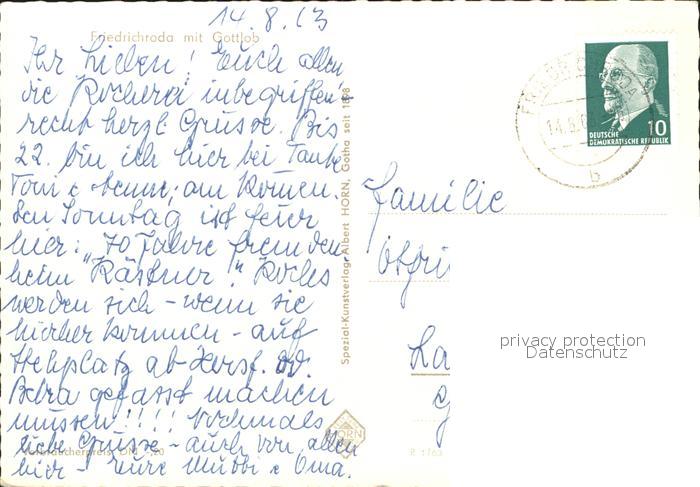 14.8.63
Friedrichroda mit Gottlob
Ihr Lieben! Euch allen
die Kocherei inbegriffen
recht herzl. Grüsse. Bis
22. bin ich hier bei Tante
Toni &
am kommen.
den Sonntag ist feier
hier: "70 Jahre fremden
heim "Kästner!" Kochs
werden sich - wenn sie
hierher kommen - auf
Stehplatz ab Hersf. od.
Bebra gefasst machen
müssen!!!! Nochmals
liebe Grüsse - auch von allen
hier - eure Mutti & Oma.
Verbraucherpreis DM -,20
Spezial-Kunstverlag Albert HORN, Gotha seit 1898
HORN
R 1763
14.8.6
b
10
DEUTSCHE
DEMOKRATISCHE REPUBLIK
Familie
La
privacy protection
Datenschutz